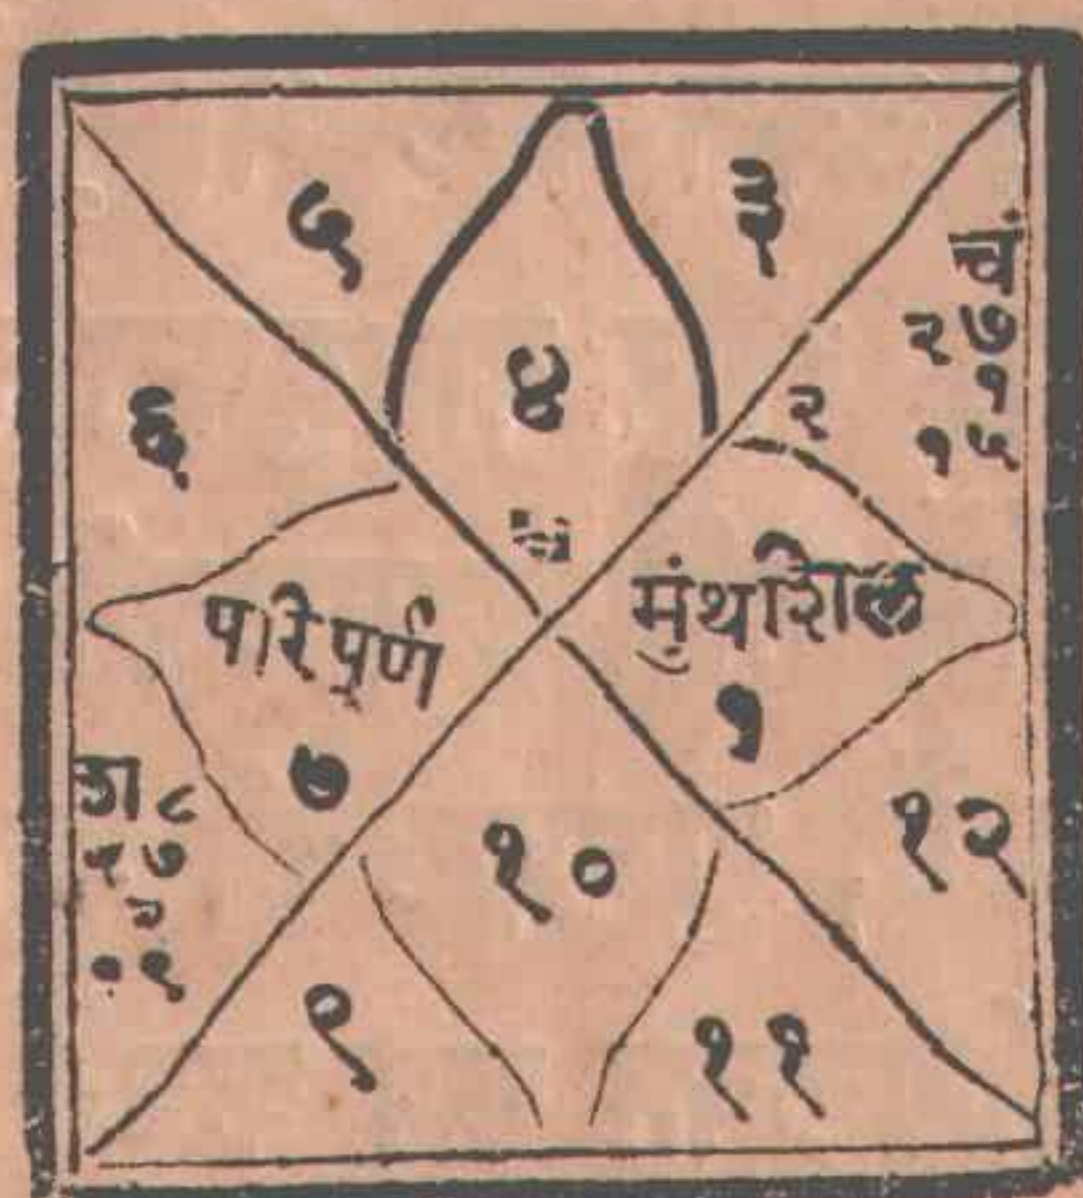 ५
३
चं
२७
१
१५
२
४
६
परिपूर्ण
मुंथशिल
७
१
८
१०
१२
९
११